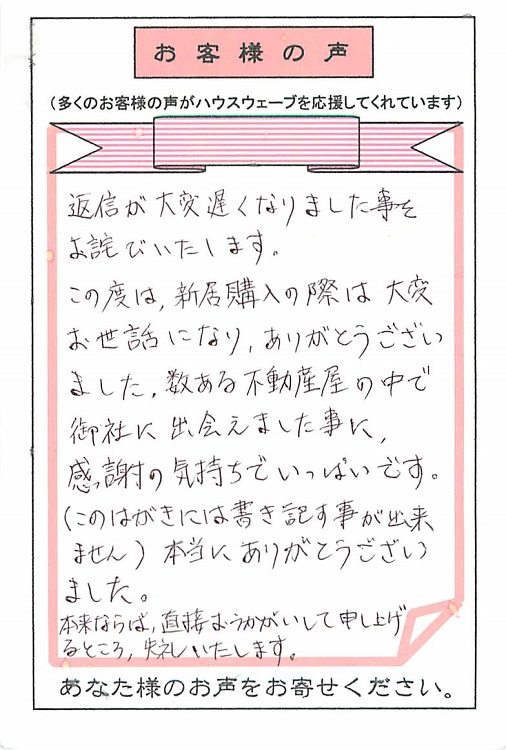 お客様の声
（多くのお客様の声がハウスウェーブを応援してくれています）
返信が大変遅くなりました事を
お詫びいたします。
この度は、新居購入の際は大変
お世話になり、ありがとうござい
ました。数ある不動産屋の中で
御社に出会えました事に、
感謝の気持ちでいっぱいです。
（このはがきには書き記す事が出来
ません）本当にありがとうござい
ました。
本来ならば、直接おうかがいして申し上げ
るところ、失礼いたします。
あなた様のお声をお寄せください。